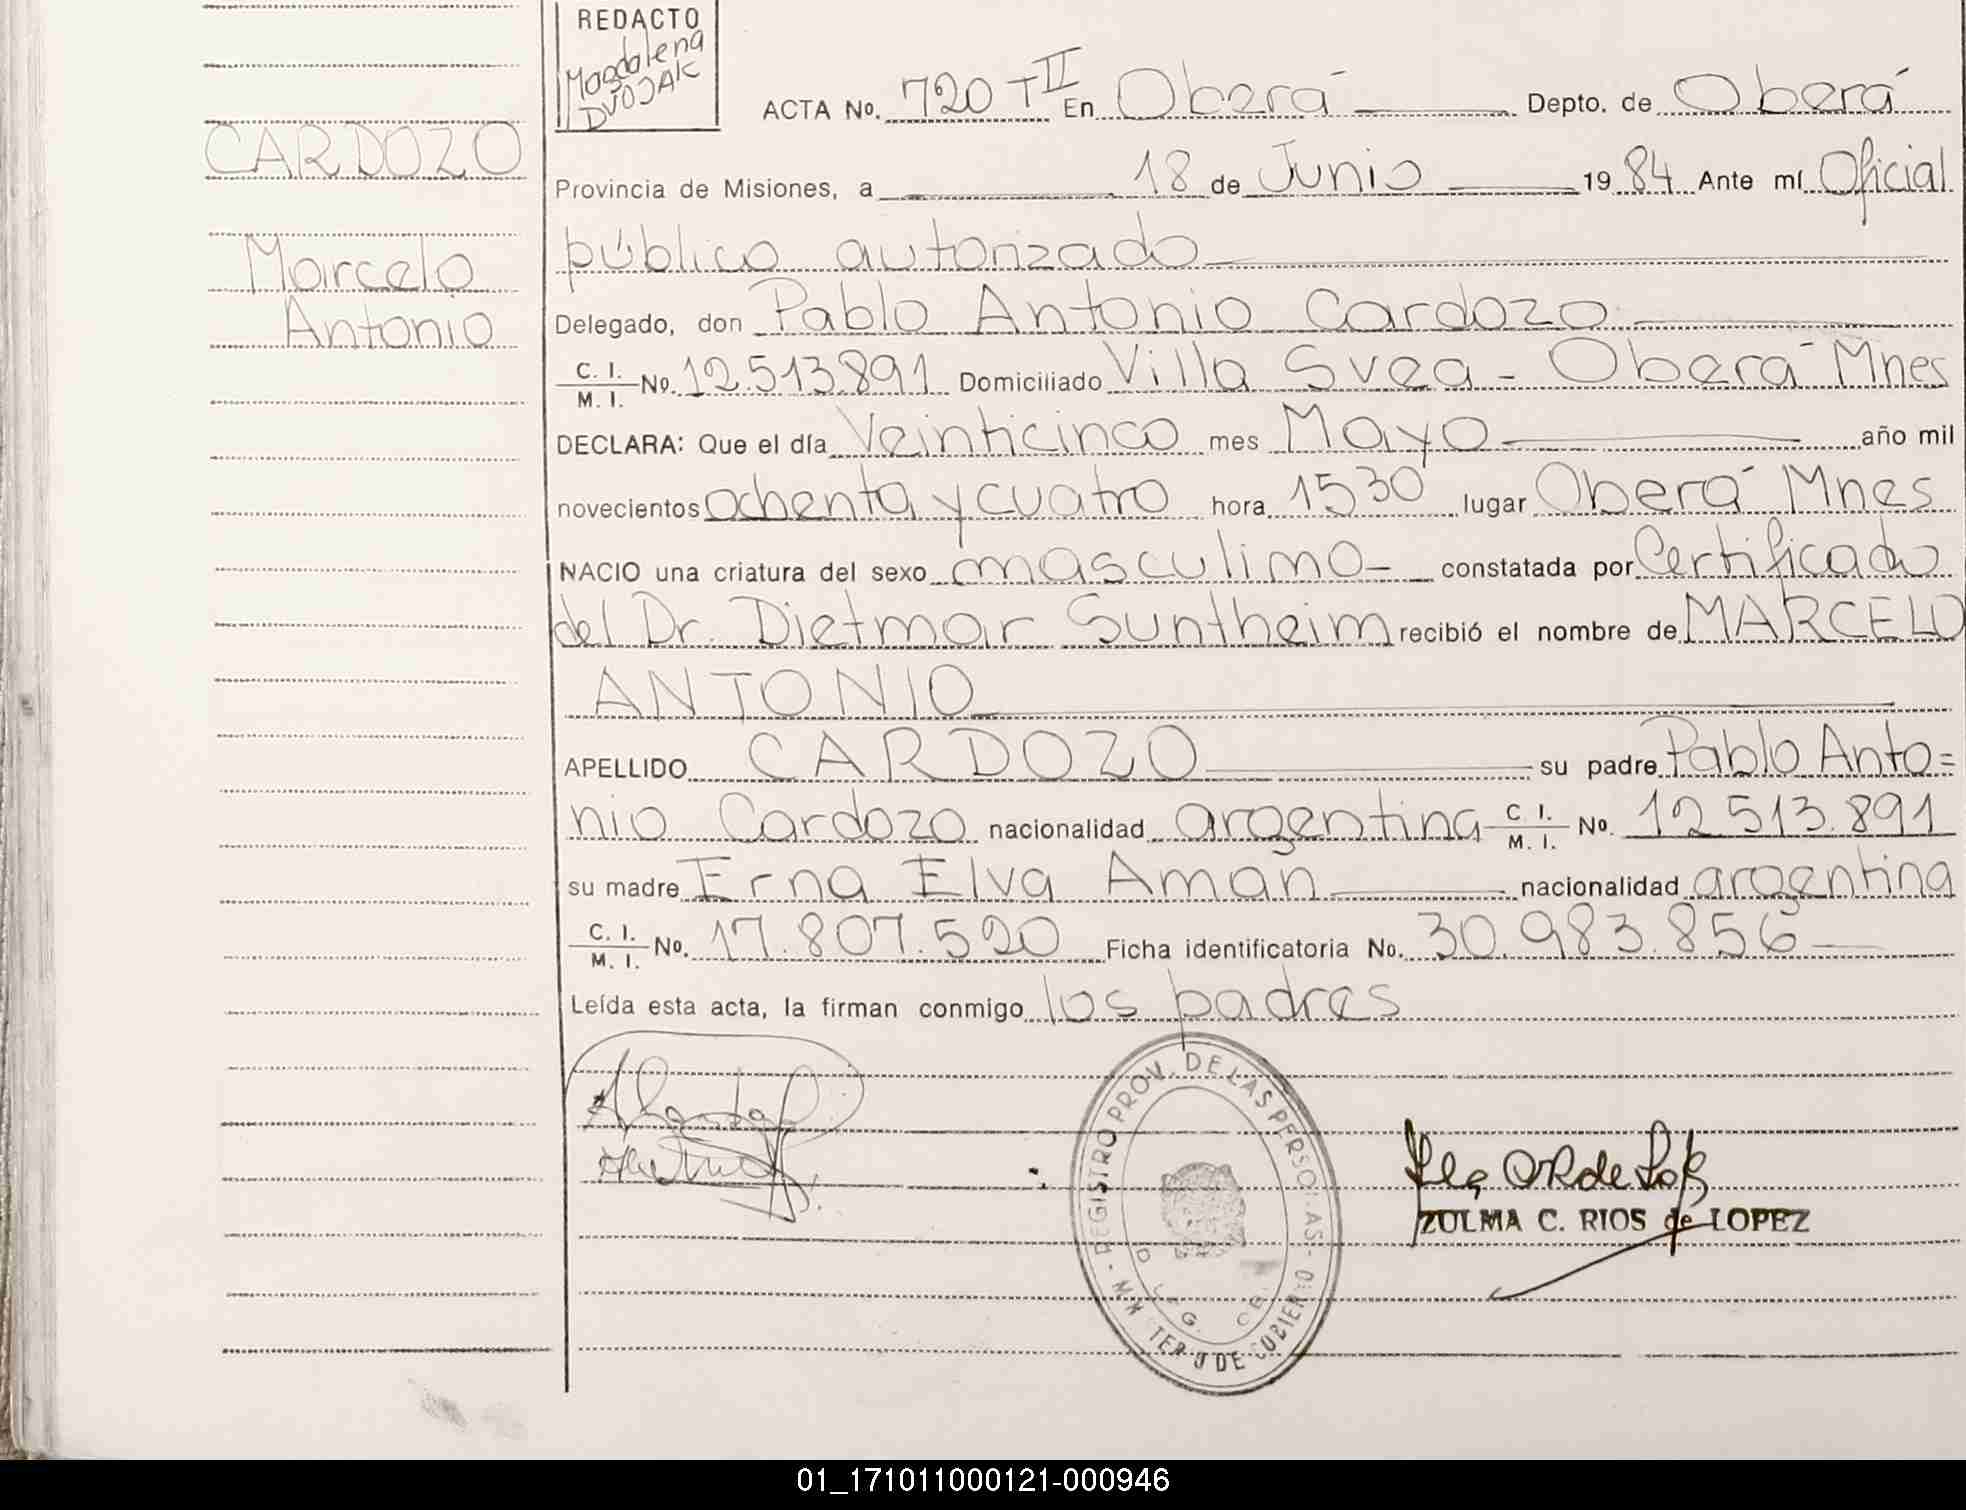 REDACTO
Magdalena
DVOJAK
ACTA No. 720 T II En Oberá Depto. de Oberá
CARDOZO
Provincia de Misiones, a 18 de Junio 19 84 Ante mí Oficial
Marcelo
público autorizado
Antonio
Delegado, don Pablo Antonio Cardozo
C. I.
M. I. No. 12.513.891 Domiciliado Villa Svea - Oberá Mnes
DECLARA: Que el día Veinticinco mes Mayo año mil
novecientos ochenta y cuatro hora 1530 lugar Oberá Mnes
NACIO una criatura del sexo masculino constatada por Certificado
del Dr. Dietmar Suntheim recibió el nombre de MARCELO
ANTONIO
APELLIDO CARDOZO su padre Pablo Anto=
nio Cardozo nacionalidad argentina C. I. M. I. No. 12 513.891
su madre Erna Elva Aman nacionalidad argentina
C. I.
M. I. No. 17.807.520 Ficha identificatoria No. 30.983.856
Leída esta acta, la firman conmigo los padres
REGISTRO PROV. DE LAS PERSONAS - MINISTERIO DE GOBIERNO
ZULMA C. RIOS de LOPEZ
01_171011000121-000946